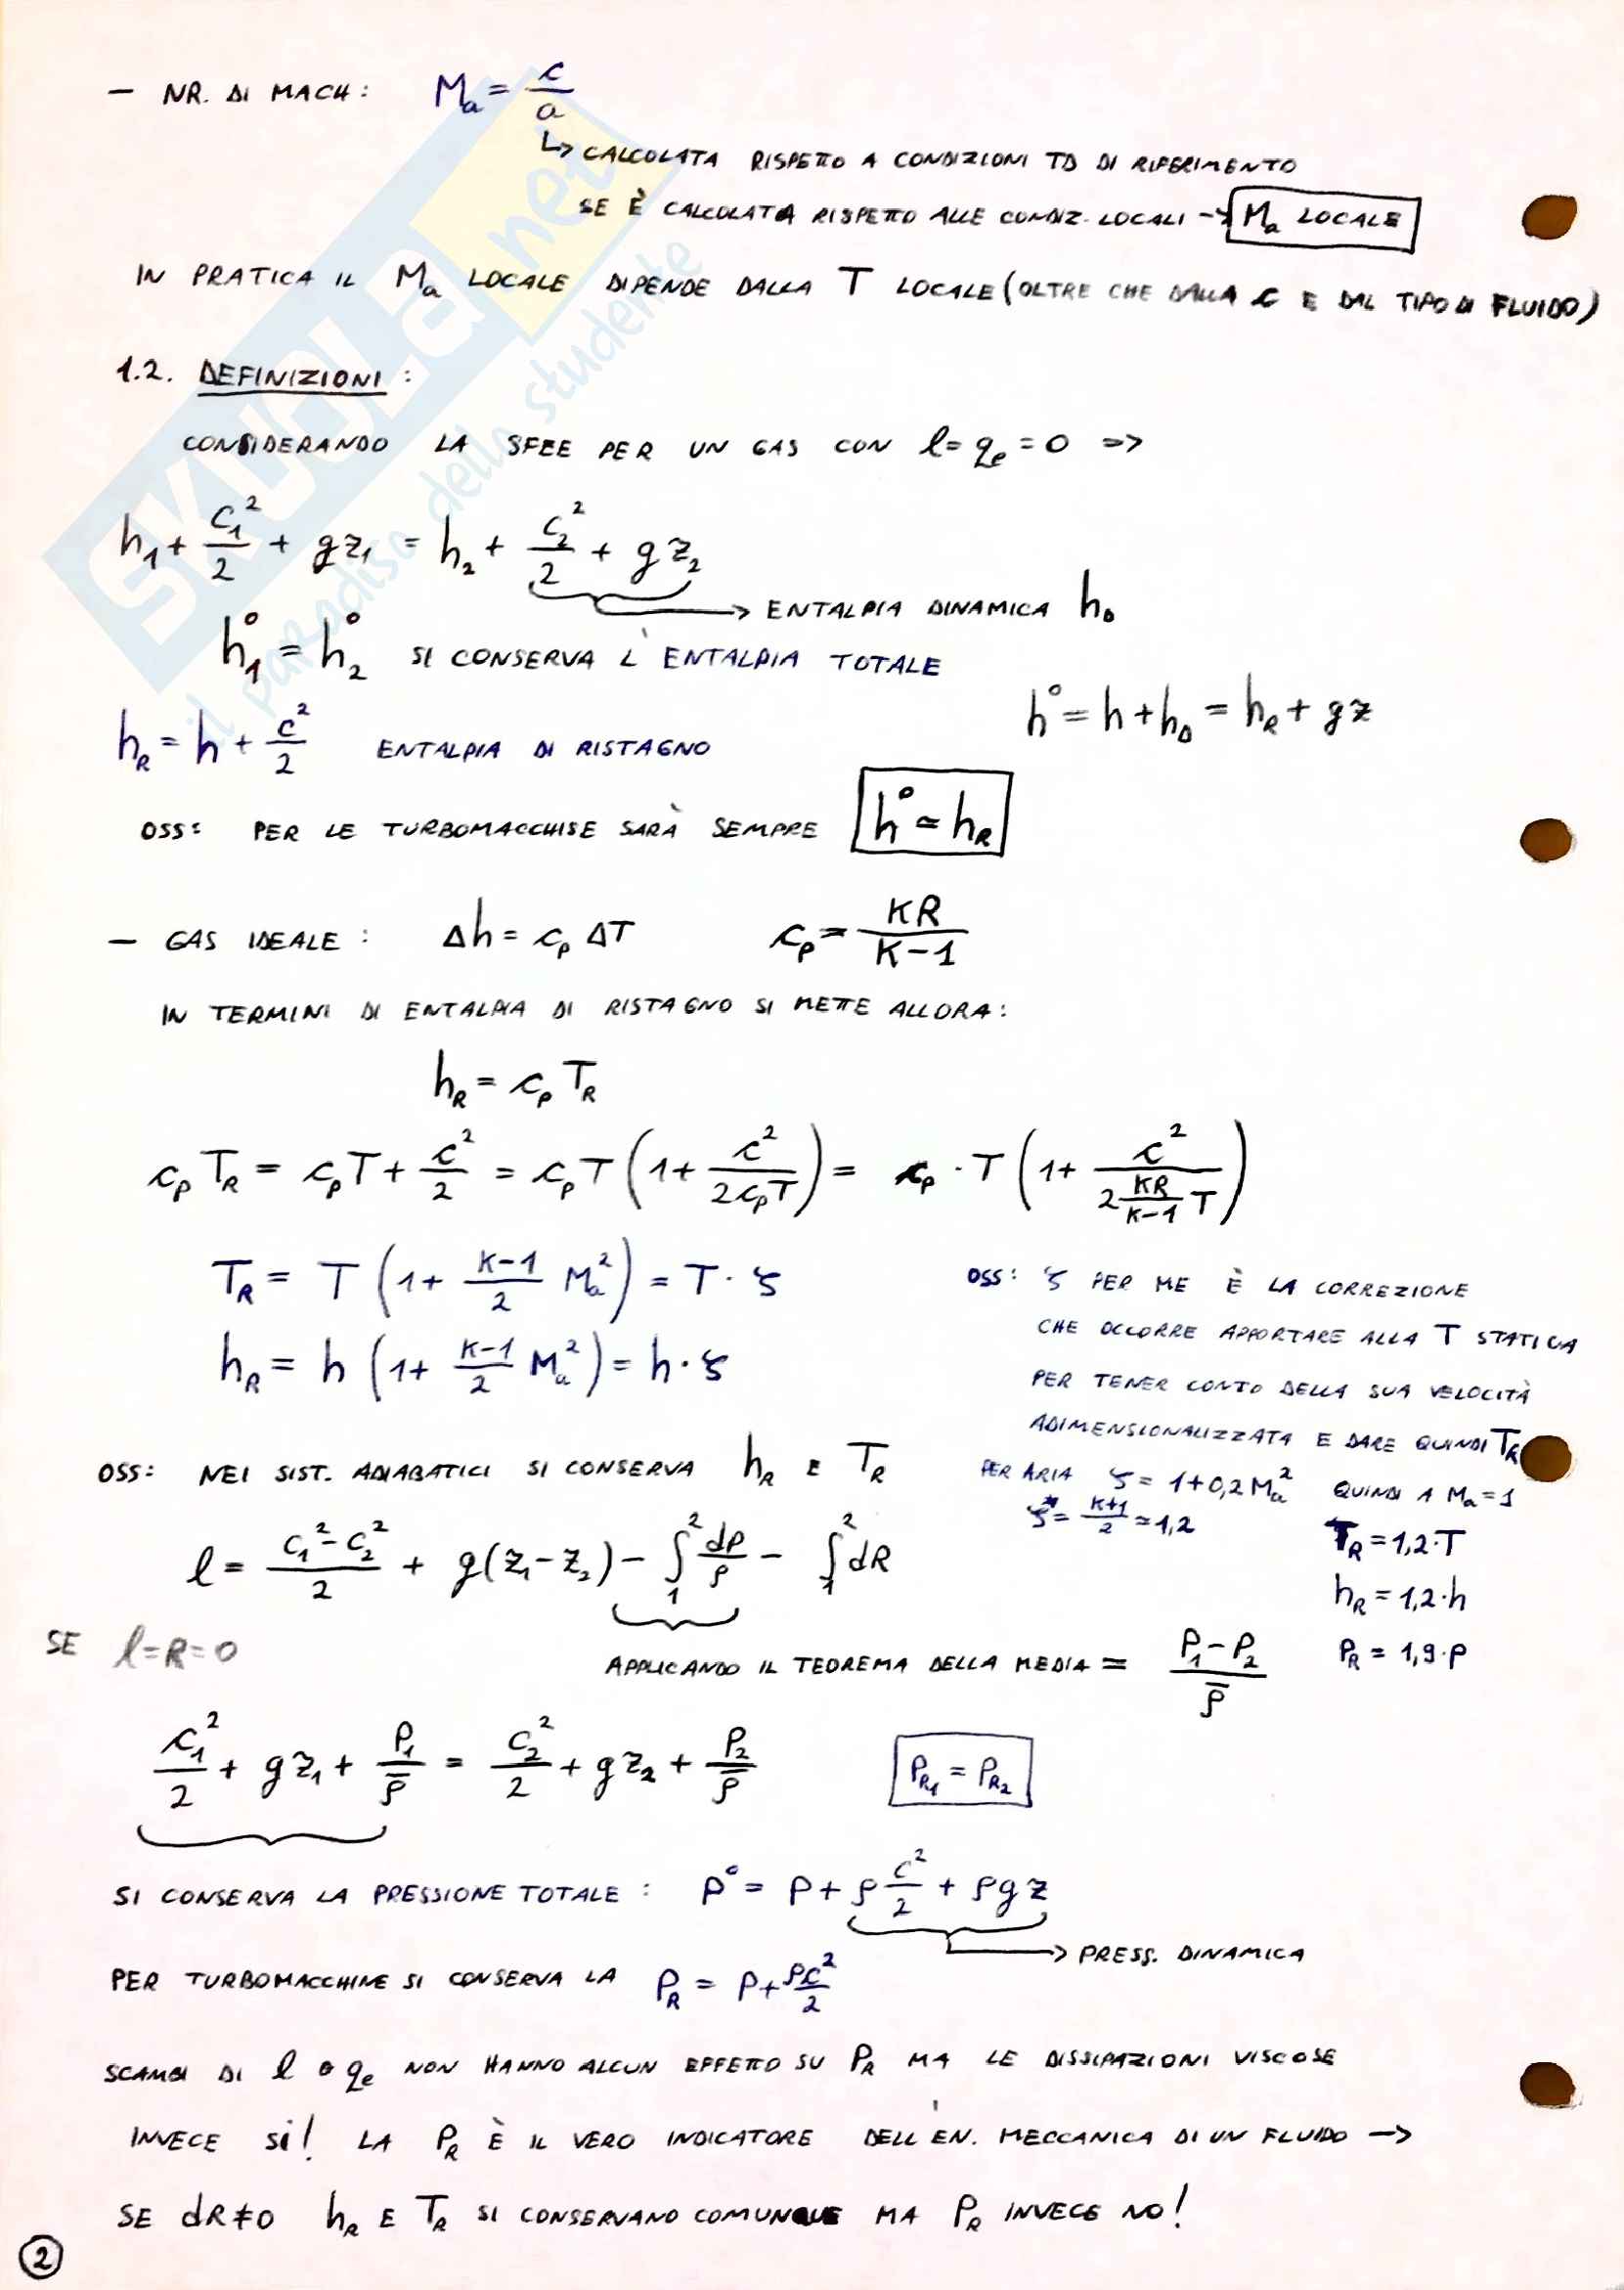 – NR. DI MACH: Ma = c/a
↳ CALCOLATA RISPETTO A CONDIZIONI TD DI RIFERIMENTO
SE È CALCOLATA RISPETTO ALLE CONDIZ. LOCALI → Ma LOCALE
IN PRATICA IL Ma LOCALE DIPENDE DALLA T LOCALE (OLTRE CHE DALLA c E DAL TIPO DI FLUIDO)
1.2. DEFINIZIONI:
CONSIDERANDO LA SFEE PER UN GAS CON l = qe = 0 =>
h₁ + c₁²/2 + gz₁ = h₂ + c₂²/2 + gz₂
→ ENTALPIA DINAMICA h_D
h₁° = h₂° SI CONSERVA L'ENTALPIA TOTALE
h° = h + h_D = h_R + gz
h_R = h + c²/2 ENTALPIA DI RISTAGNO
OSS: PER LE TURBOMACCHISE SARÀ SEMPRE h° ≃ h_R
– GAS IDEALE: Δh = cp ΔT cp = KR/(K-1)
IN TERMINI DI ENTALPIA DI RISTAGNO SI METTE ALLORA:
h_R = cp T_R
cp T_R = cp T + c²/2 = cp T (1 + c²/(2 cp T)) = cp · T (1 + c²/(2 KR/(K-1) T))
T_R = T (1 + (K-1)/2 Ma²) = T · ζ
h_R = h (1 + (K-1)/2 Ma²) = h · ζ
OSS: ζ PER ME È LA CORREZIONE
CHE OCCORRE APPORTARE ALLA T STATICA
PER TENER CONTO DELLA SUA VELOCITÀ
ADIMENSIONALIZZATA E DARE QUINDI T_R
PER ARIA ζ = 1 + 0,2 Ma² QUINDI A Ma = 1
ζ* = (K+1)/2 ≃ 1,2
T_R = 1,2·T
h_R = 1,2·h
P_R = 1,9·P
OSS: NEI SIST. ADIABATICI SI CONSERVA h_R E T_R
l = (c₁² - c₂²)/2 + g(z₁ - z₂) - ∫₁² dp/ρ - ∫₁² dR
SE l = R = 0
APPLICANDO IL TEOREMA DELLA MEDIA = (P₁ - P₂)/ρ̅
c₁²/2 + gz₁ + P₁/ρ̅ = c₂²/2 + gz₂ + P₂/ρ̅
P_R1 = P_R2
SI CONSERVA LA PRESSIONE TOTALE: p° = p + ρ c²/2 + ρgz
→ PRESS. DINAMICA
PER TURBOMACCHINE SI CONSERVA LA P_R = P + ρc²/2
SCAMBI DI l O qe NON HANNO ALCUN EFFETTO SU P_R MA LE DISSIPAZIONI VISCOSE
INVECE SÌ! LA P_R È IL VERO INDICATORE DELL'EN. MECCANICA DI UN FLUIDO →
SE dR ≠ 0 h_R E T_R SI CONSERVANO COMUNQUE MA P_R INVECE NO!
2
SKUOLA.net
il paradiso dello studente